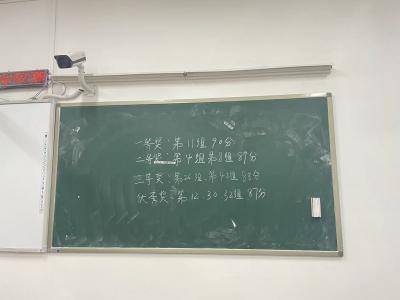 一等奖：第11组 90分
二等奖：第4组 第8组 89分
三等奖：第26组、第42组 88分
优秀奖：第12、30、32组 87分